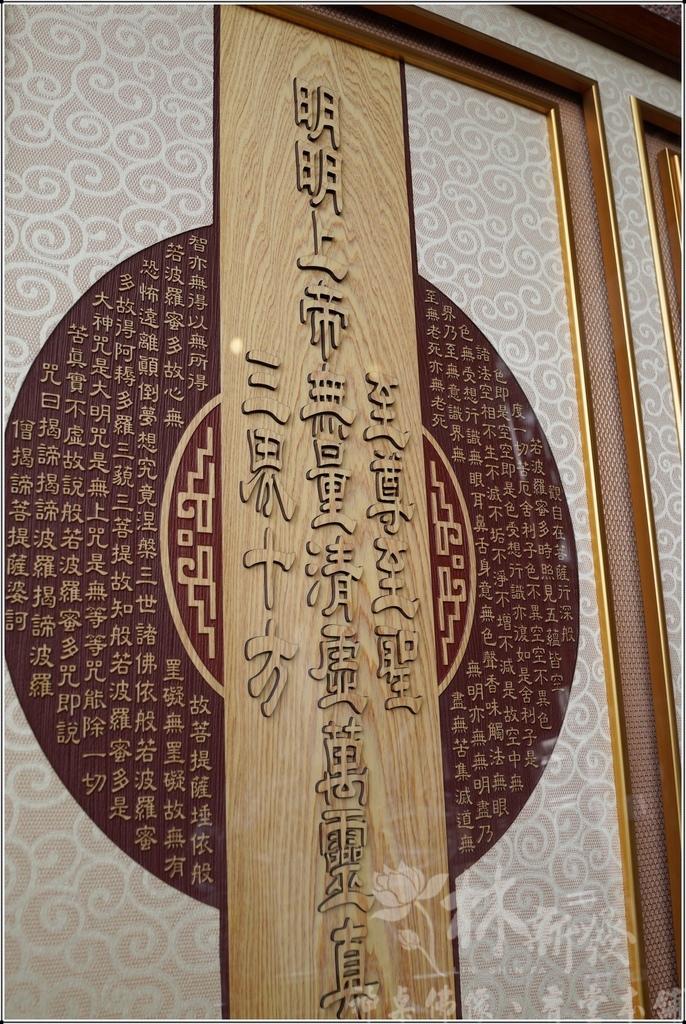 明明上帝無量清虛
至尊至聖
三界十方
萬靈真
觀自在菩薩行深般
若波羅蜜多時照見五蘊皆空
度一切苦厄舍利子色不異空空不異色
色即是空空即是色受想行識亦復如是舍利子是
諸法空相不生不滅不垢不淨不增不減是故空中無
色無受想行識無眼耳鼻舌身意無色聲香味觸法無眼
界乃至無意識界無
無明亦無無明盡乃
至無老死亦無老死
盡無苦集滅道無
智亦無得以無所得
故菩提薩埵依般
若波羅蜜多故心無
罣礙無罣礙故無有
恐怖遠離顛倒夢想究竟涅槃三世諸佛依般若波羅蜜
多故得阿耨多羅三藐三菩提故知般若波羅蜜多是
大神咒是大明咒是無上咒是無等等咒能除一切
苦真實不虛故說般若波羅蜜多咒即說
咒曰揭諦揭諦波羅揭諦波羅
僧揭諦菩提薩婆訶
林新發